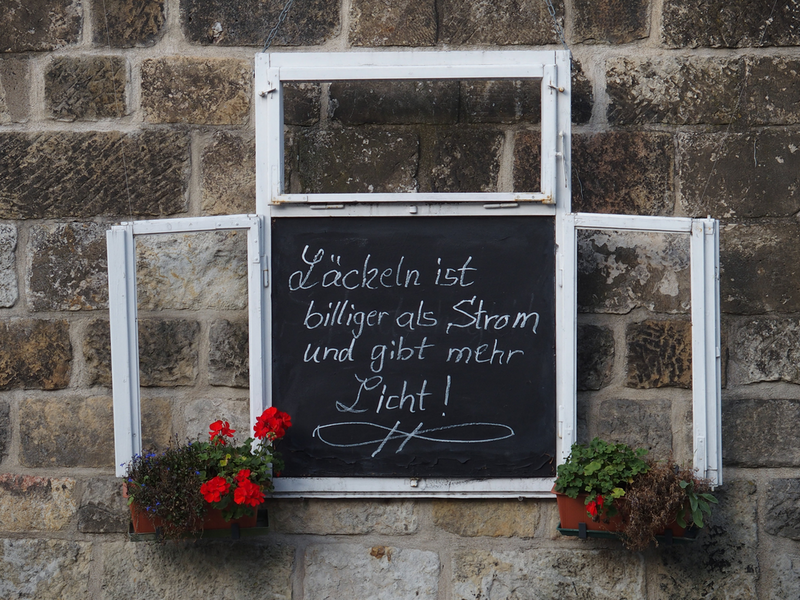 Läckeln ist
billiger als Strom
und gibt mehr
Licht!